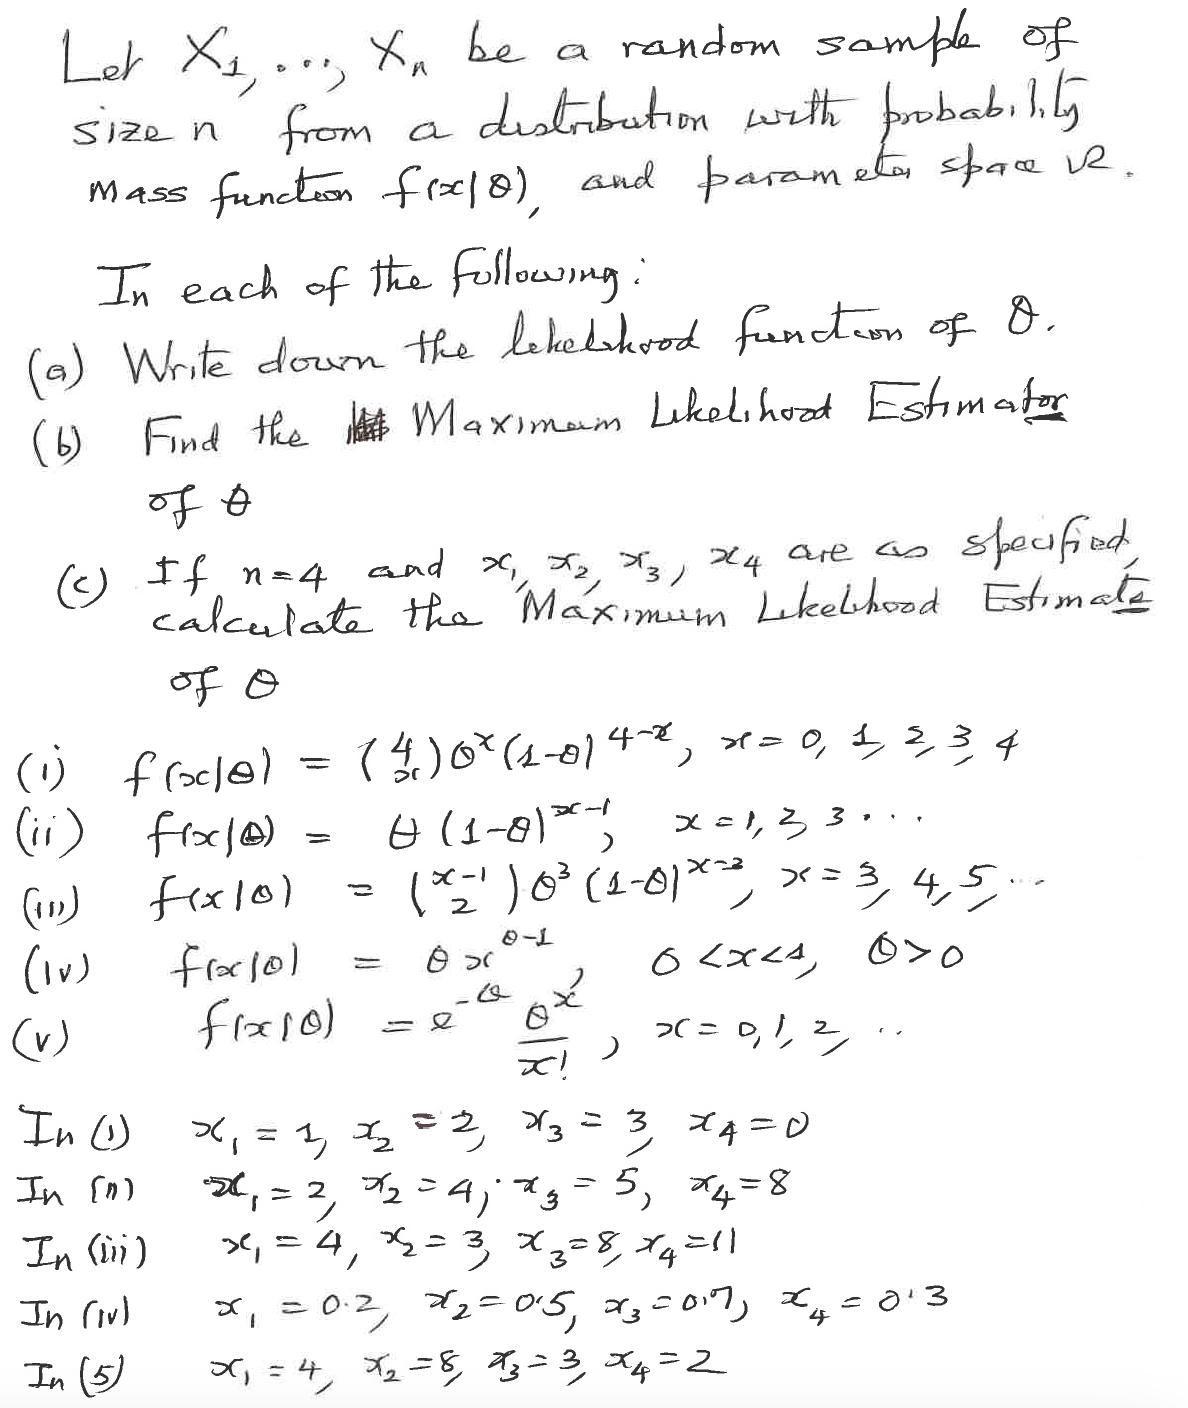 Let X1, ..., Xn be a random sample of
size n from a distribution with probability
Mass function f(x|θ), and parameter space Ω.
In each of the following:
(a) Write down the likelihood function of θ.
(b) Find the Maximum Likelihood Estimator
of θ
(c) If n=4 and x1, x2, x3, x4 are as specified,
calculate the Maximum Likelihood Estimate
of θ
(i) f(x|θ) = (4 x) θ^x (1-θ)^4-x, x = 0, 1, 2, 3, 4
(ii) f(x|θ) = θ (1-θ)^x-1, x = 1, 2, 3...
(iii) f(x|θ) = (x-1 2) θ^3 (1-θ)^x-3, x = 3, 4, 5, ...
(iv) f(x|θ) = θ x^θ-1, 0 < x < 1, θ > 0
(v) f(x|θ) = e^-θ θ^x / x!, x = 0, 1, 2, ..
In (i) x1 = 1, x2 = 2, x3 = 3, x4 = 0
In (ii) x1 = 2, x2 = 4, x3 = 5, x4 = 8
In (iii) x1 = 4, x2 = 3, x3 = 8, x4 = 11
In (iv) x1 = 0.2, x2 = 0.5, x3 = 0.7, x4 = 0.3
In (5) x1 = 4, x2 = 8, x3 = 3, x4 = 2